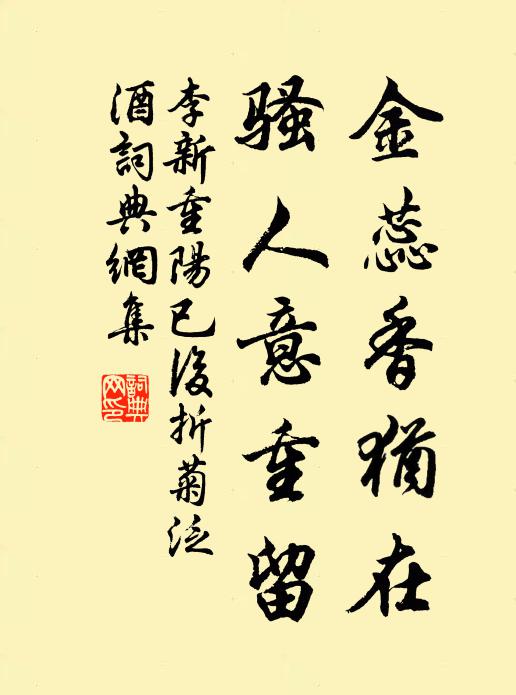 金蕊香猶在
騷人意重留
李新重陽已後折菊泛
酒詞典網集
詞典
网印